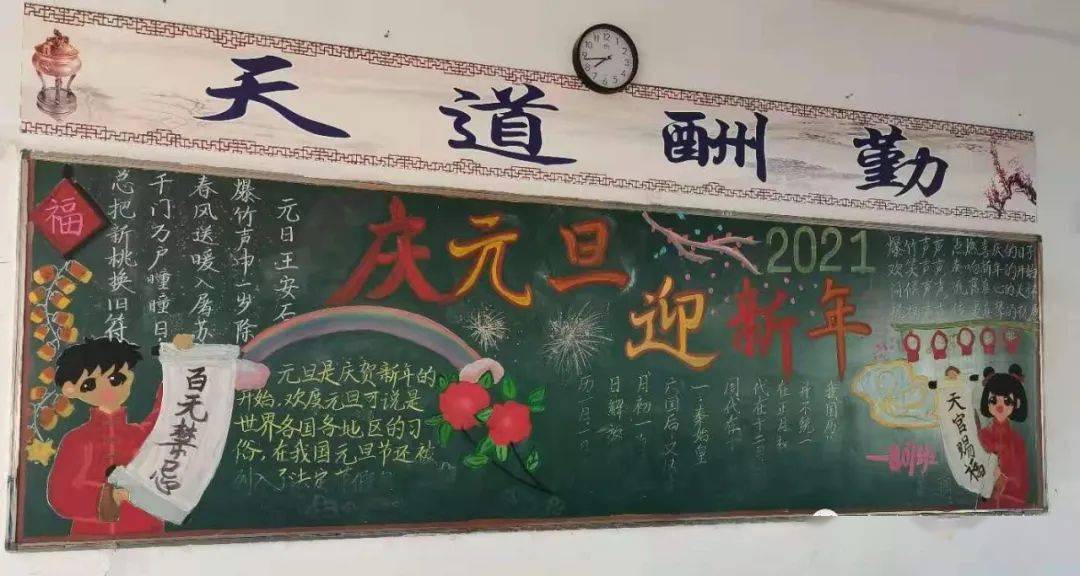 天道酬勤
福
元日王安石
爆竹声中一岁除
春风送暖入屠苏
千门万户瞳瞳日
总把新桃换旧符
庆元旦
迎新年
2021
百无禁忌
元旦是庆贺新年的
开始,欢度元旦可说是
世界各国各地区的习
俗,在我国元旦节还被
列入了法定节假
我国历
并不统一
在正月初
代在十二月
周代在十
一,秦始皇
六国后,又以
月初一
日,解放
历一月一
爆竹声声 点燃喜庆的日子
欢笑声声
天官赐福